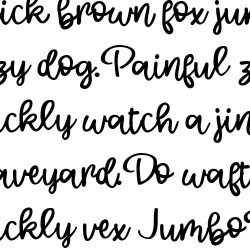 ick brown fox jum
zy dog. Painful z
ckly watch a jin
aveyard. Do waft
ckly vex Jumbo